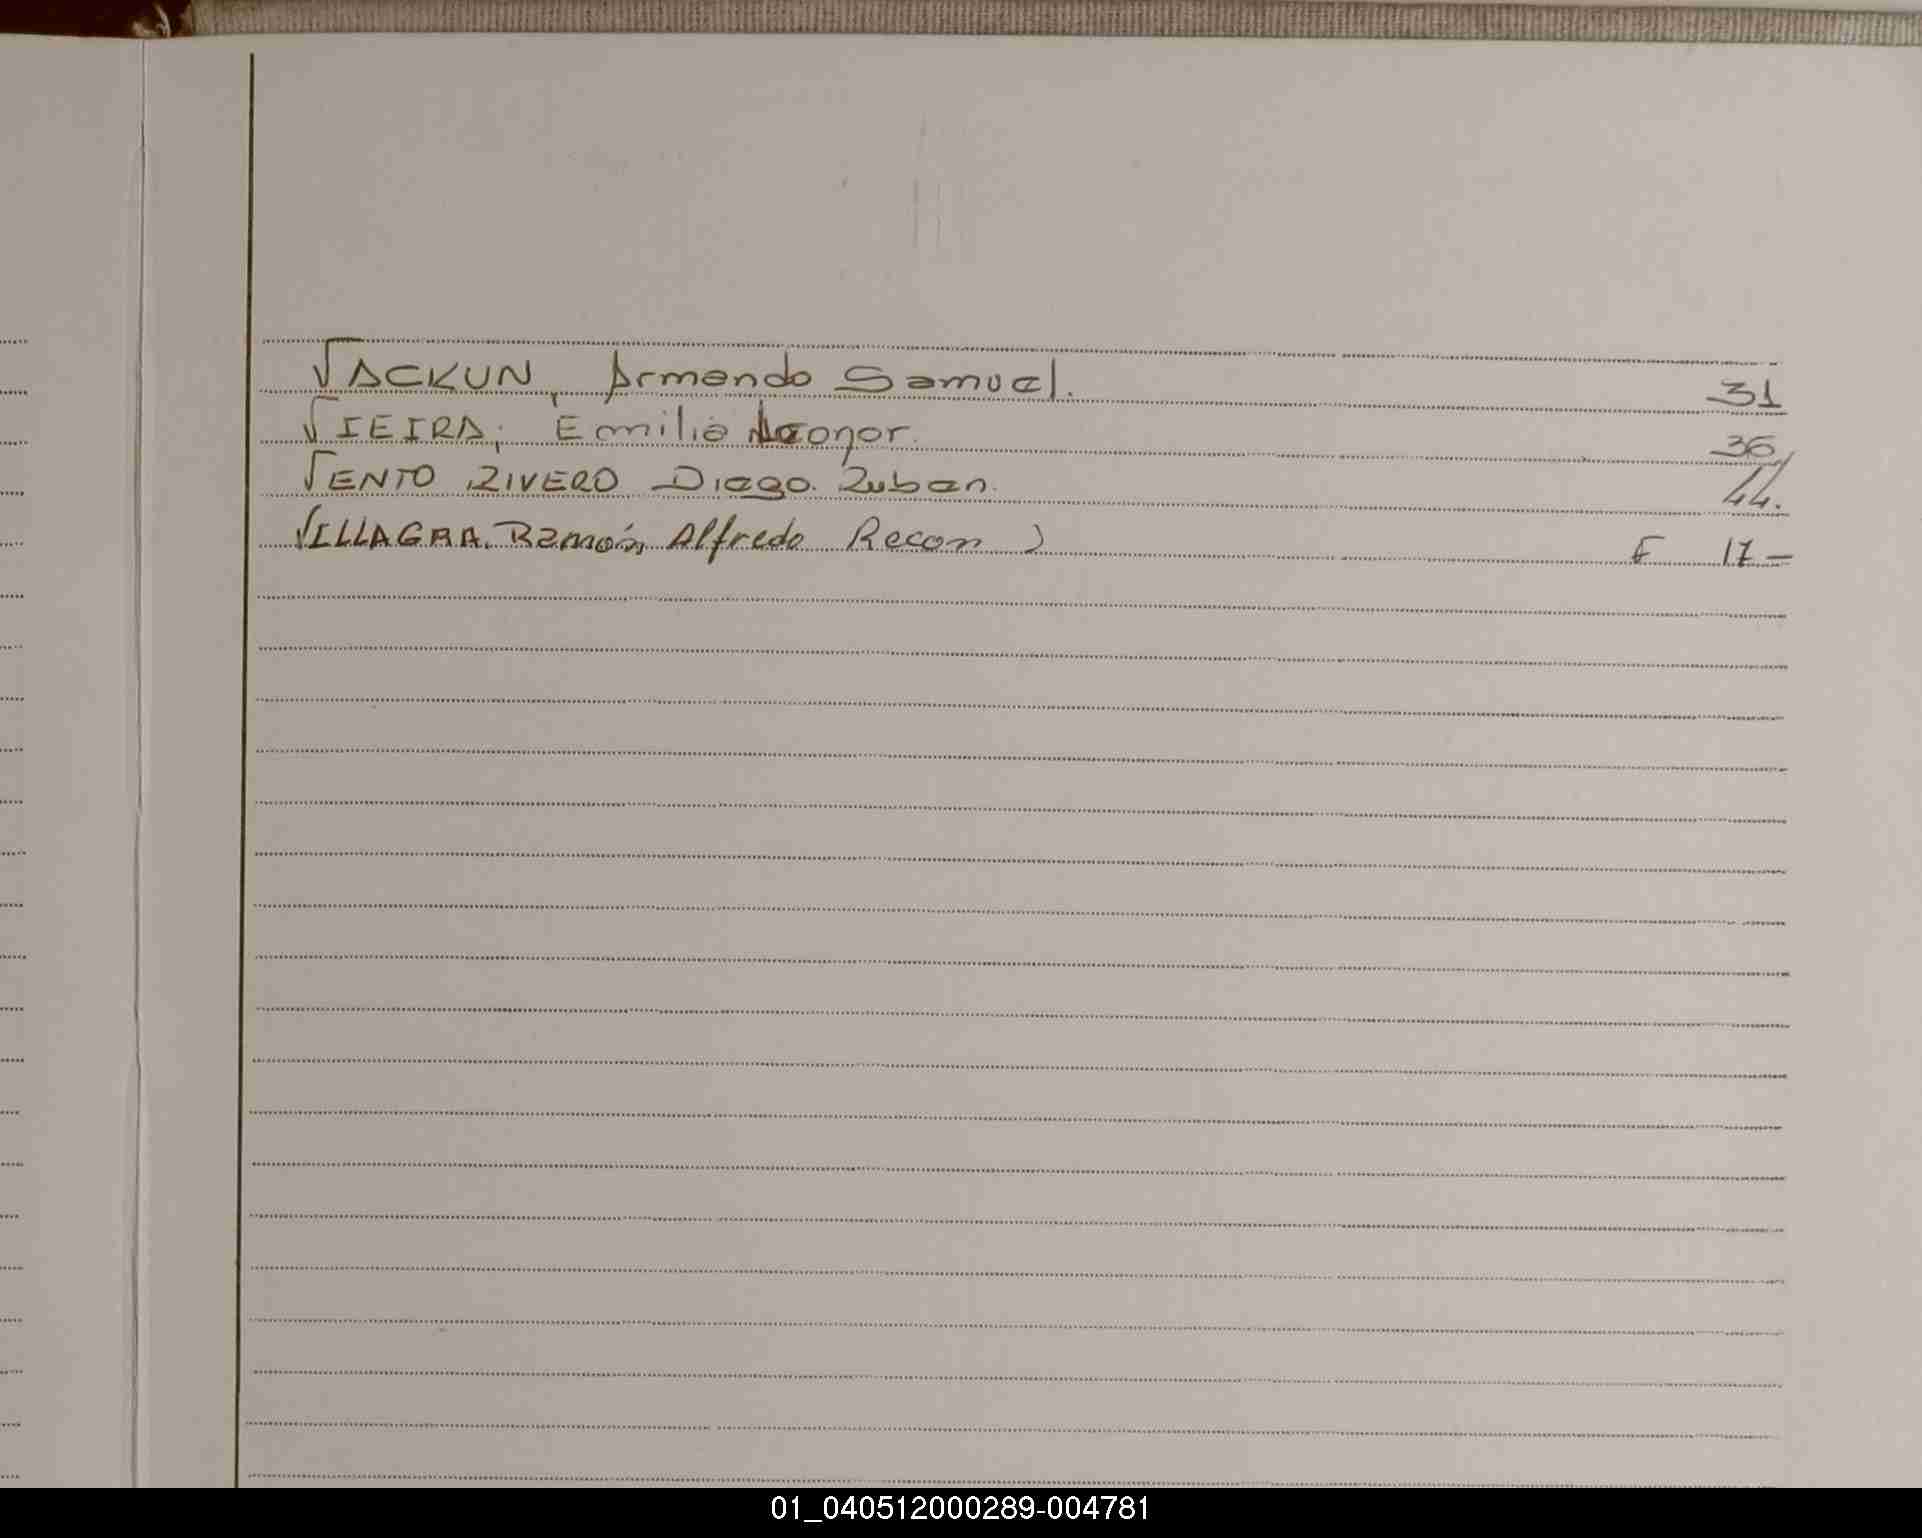 VACKUN, Armando Samuel. 31
VIEIRA, Emilia Leonor. 36
VENTO RIVERO Diego Ruben. 44.
VILLAGRA, Ramón, Alfredo Recon ) F 17 -
01_040512000289-004781